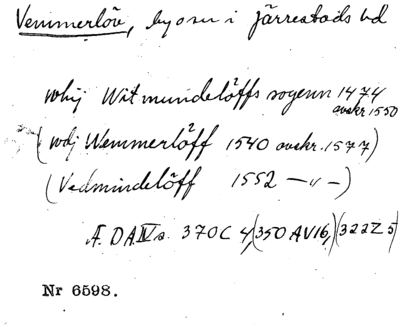 Vemmerlöv, by o sn i Järrestads hd
whij Witmundelöffs sogenn 1474
avskr 1550
(wdj Wemmerlöff 1540 avskr. 1577)
(Vedmindelöff 1552 —"—)
Æ. DA IV a 370 C 4, (350 AV 16,) (322 Z 5)
Nr 6598.